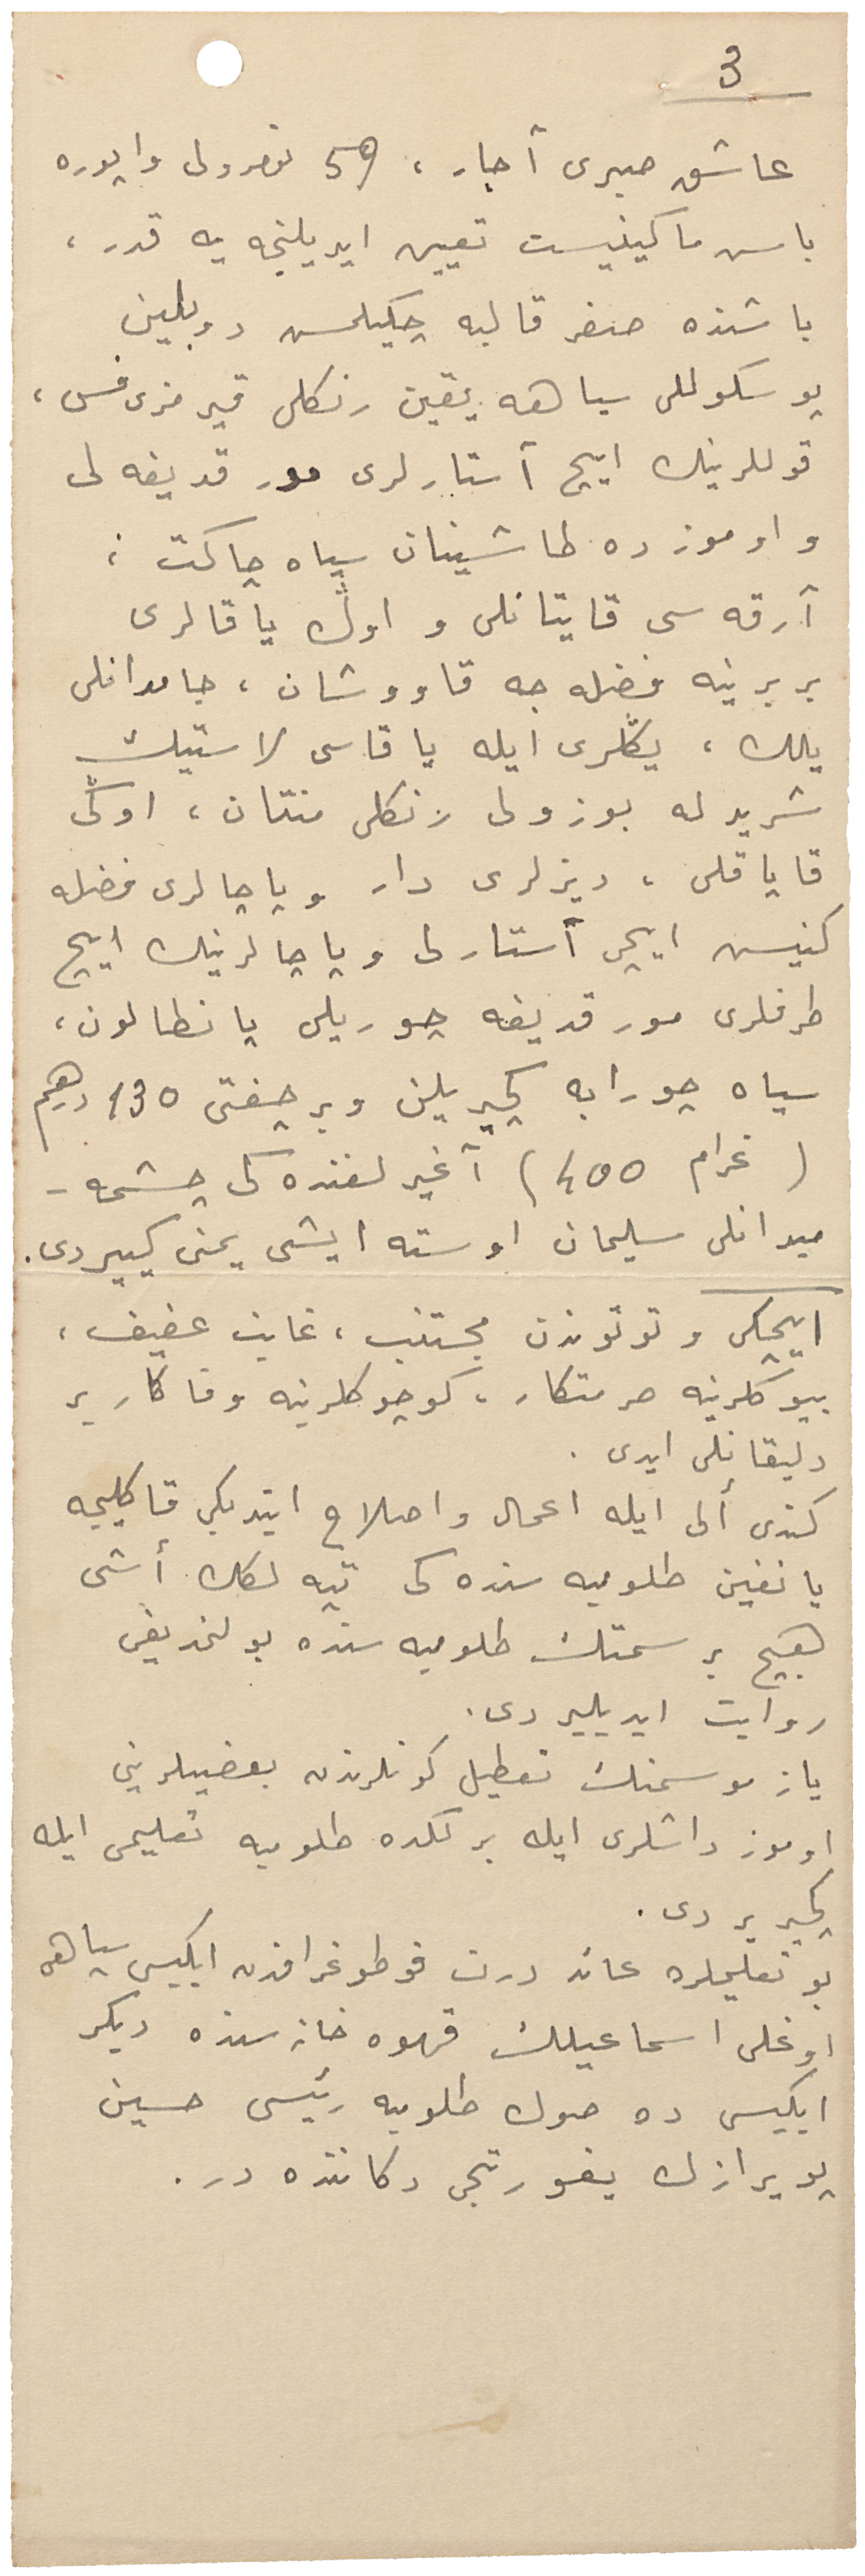 3
عاشق صبری آجار ، 59 نومرولی واپوره
باس ماكينيست تعيين ايديلنجه يه قدر ،
باشنده صفر قالبه چكيلمس دوبلين
پوسكوللی سياهه يقين رنكلی قيرمزی فس ،
قوللرينك ايچ آستارلری مور قديفه لی
و اوموزده طاشينان سياه چاكت ؛
آرقه سی قايتانلی و اوڭ ياقالری
بربرينه فضله جه قاووشان ، جامدانلی
يلك ، يڭلری ايله ياقاسی لاستيك
شريد له بوزولی رنكلی منتان ، اوڭی
قاپاقلی ، ديزلری دار و پاچالری فضله
كنيس ايچی آستارلی و پاچالرينك ايچ
طرفلری مور قديفه چوريلی پانطالون ،
سياه چورابه كچيريلن و بر چفتی 130 درهم
( غرام 400 ) آغيرلغنده كی چشمه -
ميدانلی سليمان اوسته ايشی يمنی كيیردی .
ايچكی و توتوندن مجتنب ، غايت عفيف ،
بيوكلرينه حرمتكار ، كوچوكلرينه وفاكار بر
دليقانلی ايدی .
كندی ألی ايله اعمال و اصلاح ايتديكی قاكليجه
يانغين طلومبه سنده كی تپه لكك أشی
هيچ بر سمتك طلومبه سنده بولنمديغی
روايت ايديليردی .
ياز موسمنك تعطيل كونلرندن بعضيلرينی
اوموزداشلری ايله برلكده طلومبه تعليمی ايله
كچيريردی .
بو تعليملره عائد درت فوطوغرافدن ايكيسی سپاهی
اوغلی اسماعيلك قهوه خانه سنده ديكر
ايكيسی ده صوك طلومبه رئيسی حسين
پويرازك يغورتجی دكاننده در .